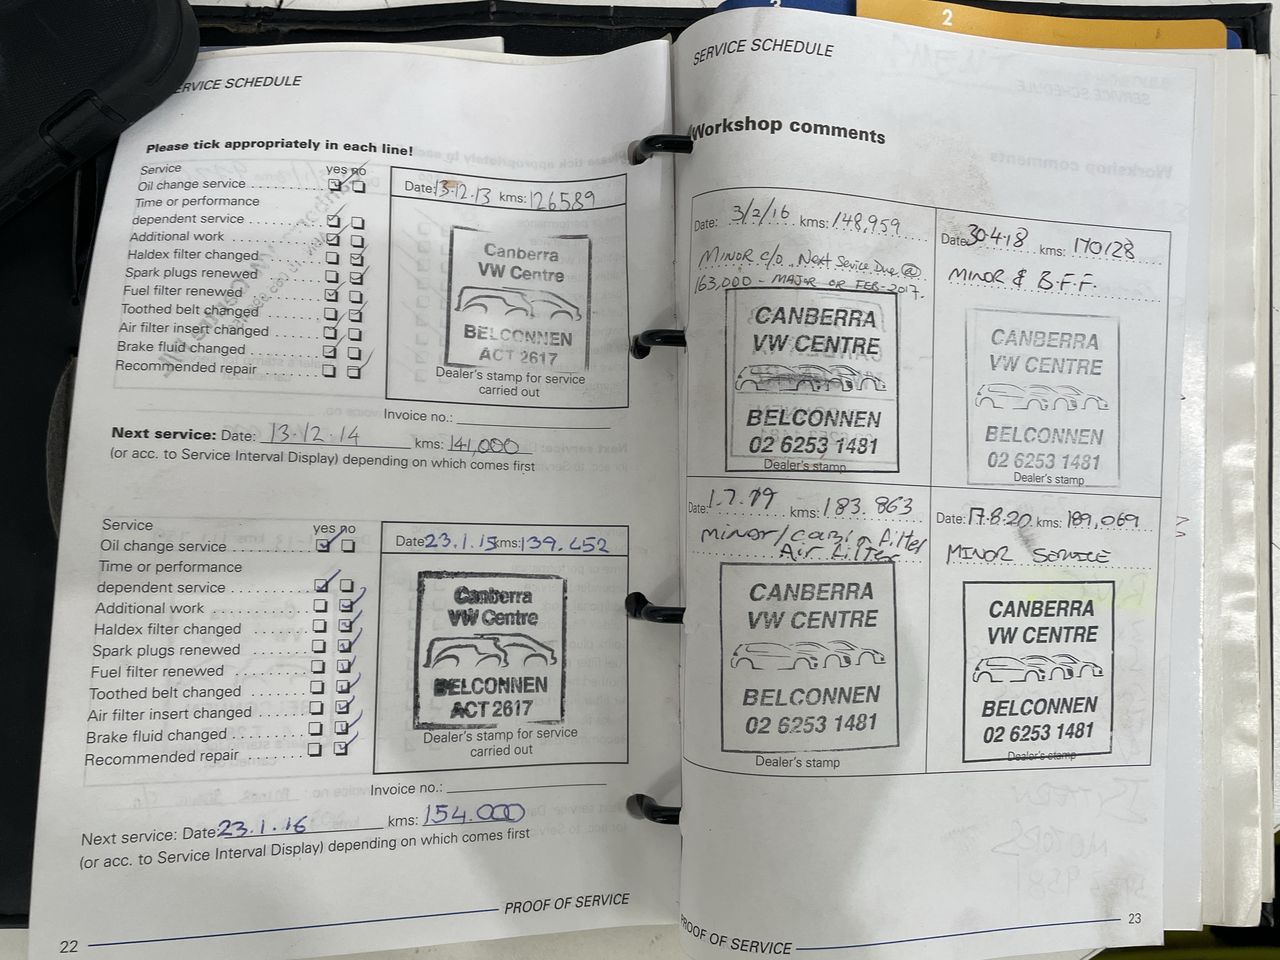 SERVICE SCHEDULE
Please tick appropriately in each line!
Service yes no
Oil change service
Time or performance
dependent service
Additional work
Haldex filter changed
Spark plugs renewed
Fuel filter renewed
Toothed belt changed
Air filter insert changed
Brake fluid changed
Recommended repair
Date: 13.12.13 kms: 126589
Canberra
VW Centre
BELCONNEN
ACT 2617
Dealer's stamp for service
carried out
Invoice no.:
Next service: Date: 13.12.14 kms: 141,000
(or acc. to Service Interval Display) depending on which comes first
Service yes no
Oil change service
Time or performance
dependent service
Additional work
Haldex filter changed
Spark plugs renewed
Fuel filter renewed
Toothed belt changed
Air filter insert changed
Brake fluid changed
Recommended repair
Date: 23.1.15 kms: 139.452
Canberra
VW Centre
BELCONNEN
ACT 2617
Dealer's stamp for service
carried out
Invoice no.:
Next service: Date: 23.1.16 kms: 154.000
(or acc. to Service Interval Display) depending on which comes first
PROOF OF SERVICE
22
3
2
SERVICE SCHEDULE
Workshop comments
Date: 3/2/16 kms: 148,959
MINOR c/o. Next Service Due @
163,000 - MAJOR OR FEB-2017.
CANBERRA
VW CENTRE
BELCONNEN
02 6253 1481
Dealer's stamp
Date: 30.4.18 kms: 170128
MINOR & B.F.F.
CANBERRA
VW CENTRE
BELCONNEN
02 6253 1481
Dealer's stamp
Date: 1.7.19 kms: 183.863
minor/cabin filter
Air filter
CANBERRA
VW CENTRE
BELCONNEN
02 6253 1481
Dealer's stamp
Date: 17.8.20 kms: 189,069
MINOR SERVICE
CANBERRA
VW CENTRE
BELCONNEN
02 6253 1481
Dealer's stamp
PROOF OF SERVICE
23